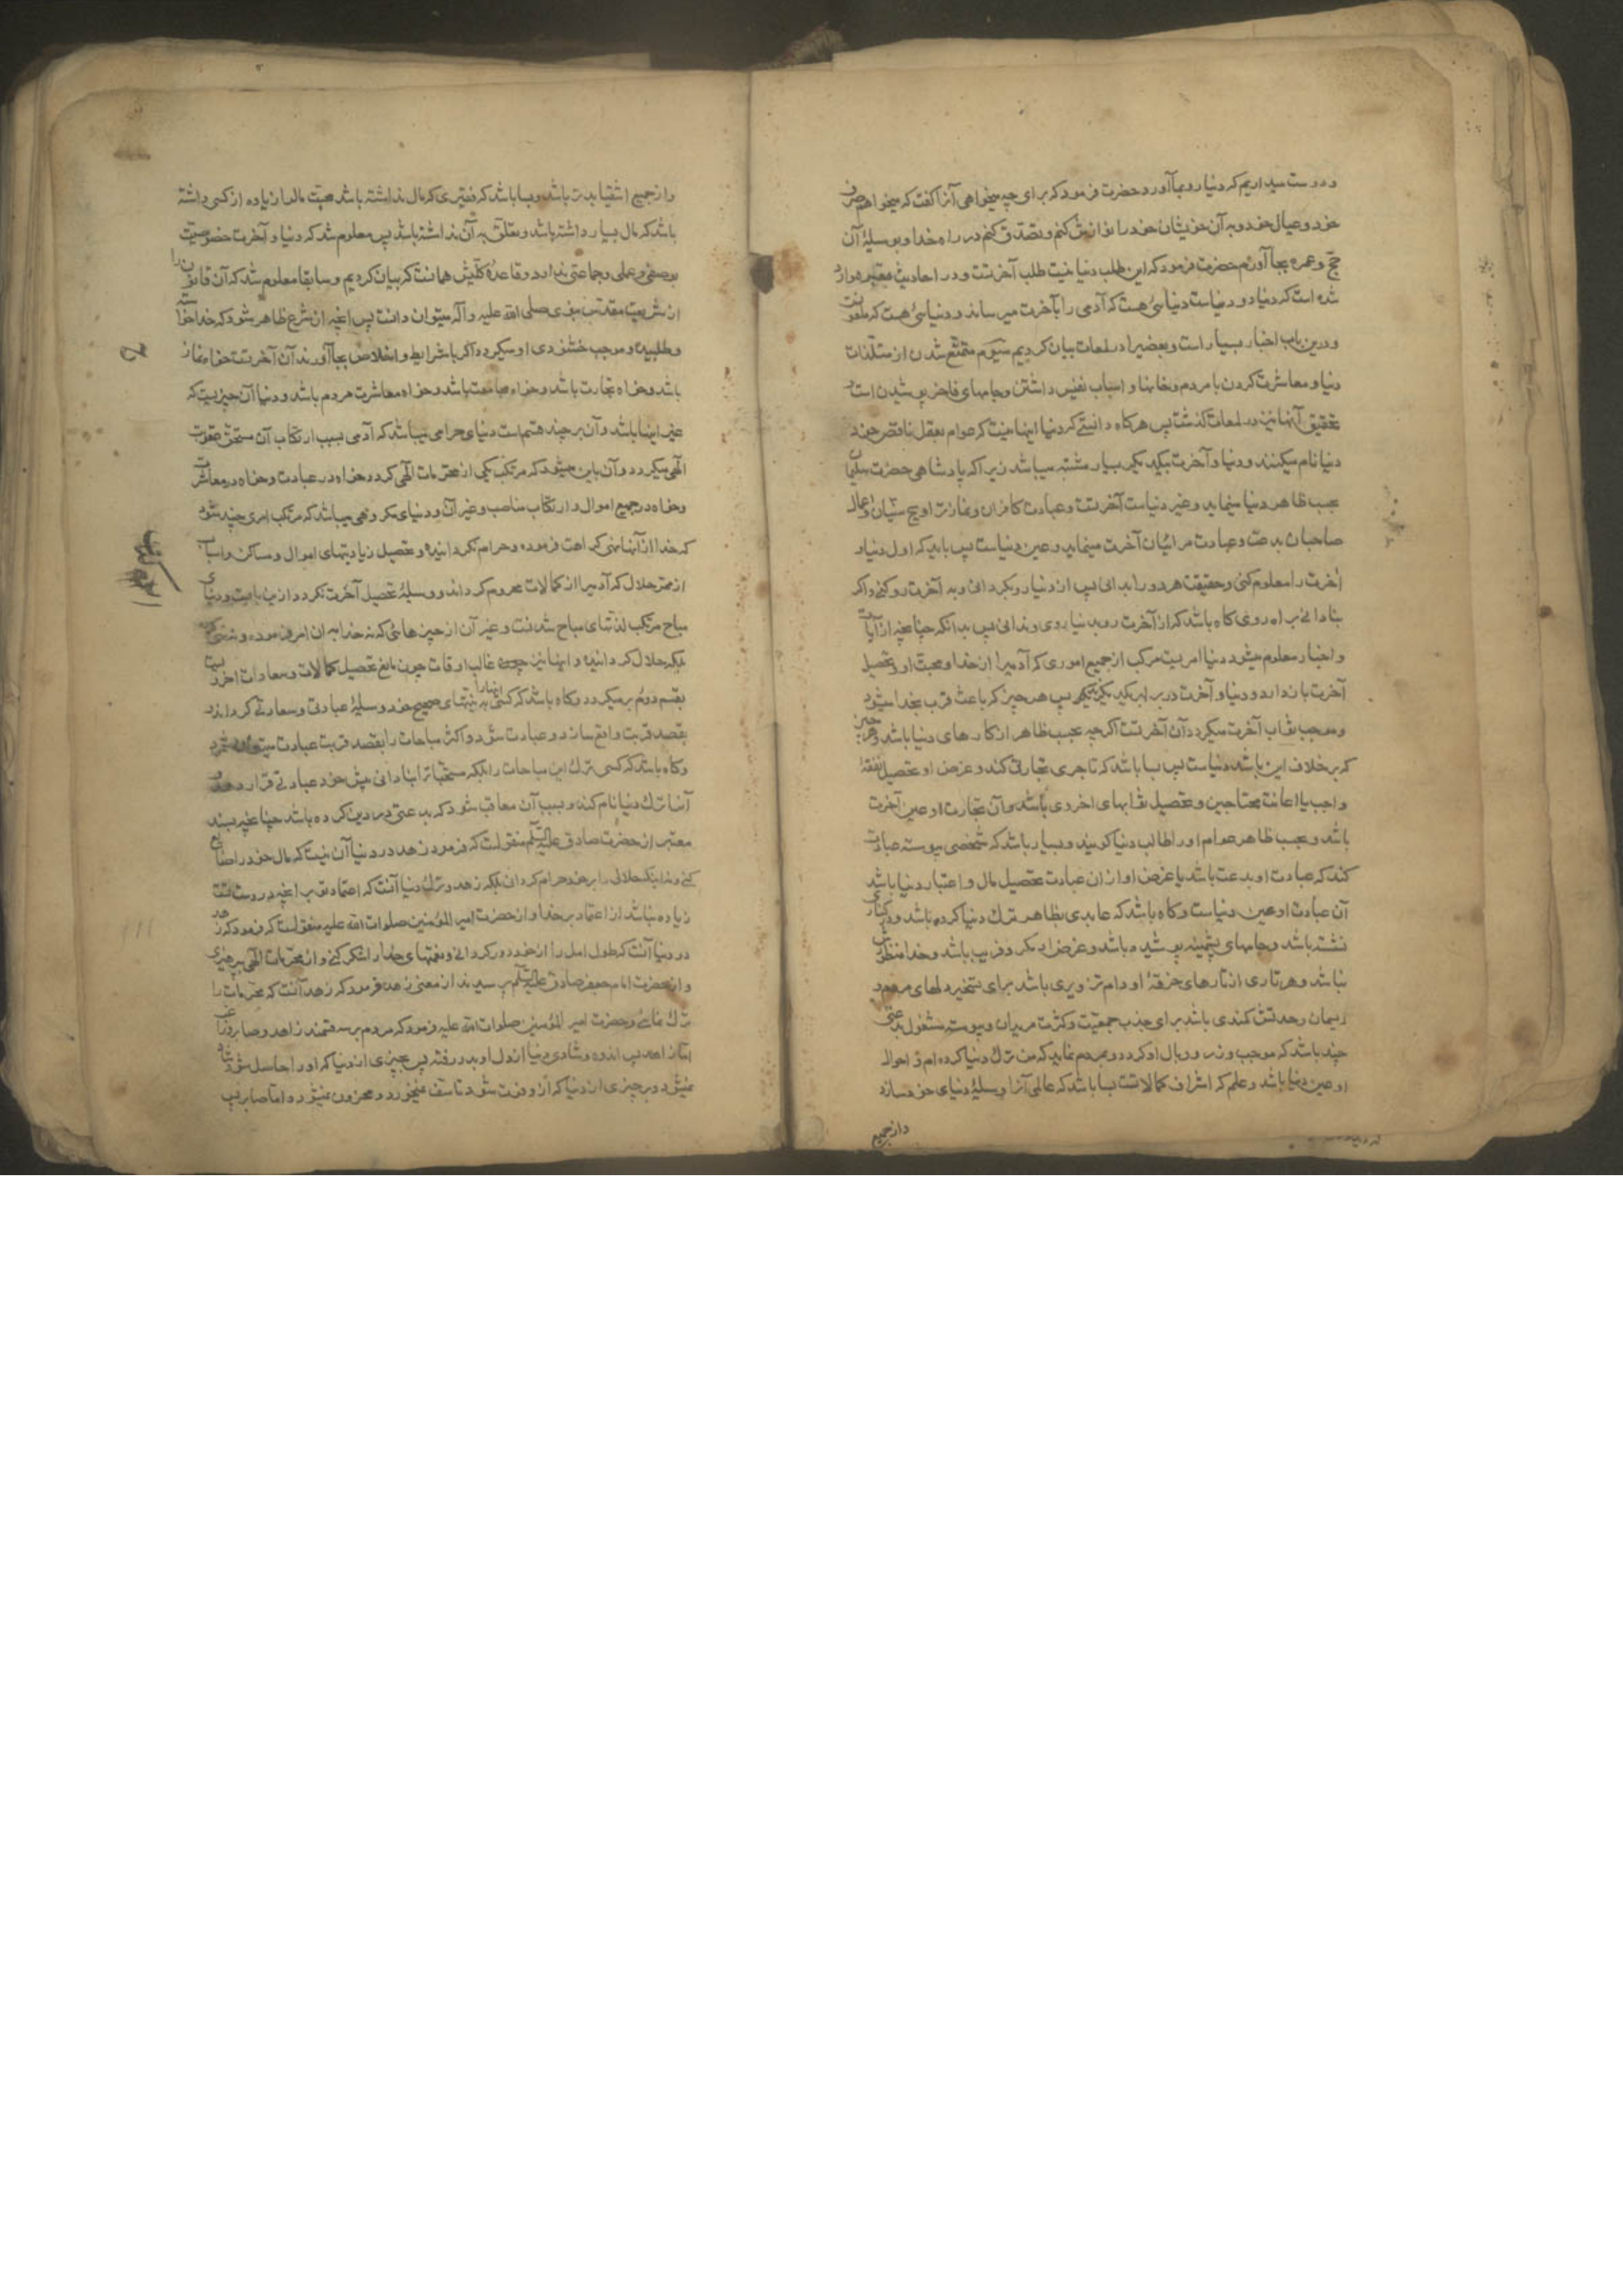 و دوست میداریم که دنیا رو بما آورد حضرت فرمود که برای چه میخواهی آنرا گفت که میخواهم صرف
خود و عیال خود و به آن خویشان خود را نوازش کنم و تصدق کنم در راه خدا و بوسیلهٔ آن
حج و عمره بجا آورم حضرت فرمود که این طلب دنیا نیست طلب آخرتست و در احادیث معتبره وارد
شده است که دنیا دو دنیاست دنیائی هست که آدمی را بآخرت میرساند و دنیائی هست که ملعونست
و درین باب اخبار بسیار است و بعضیرا در لمعات بیان کردیم سیوم متمتع شدن از مستلذات
دنیا و معاشرت کردن با مردم و خانها و اسباب نفیس داشتن و جامهای فاخر پوشیدن است و
تحقیق آنها نیز در لمعات گذشت پس هرگاه دانستی که دنیا اینها نیست که عوام بعقل ناقص خود
دنیا نام میکنند و دنیا و آخرت بیکدیگر بسیار مشتبه میباشد زیرا که پادشاهی حضرت سلیمان
بحسب ظاهر دنیا مینماید و غیر دنیاست آخرتست و عبادت کافران و نماز سنیان و اعمال
صاحبان بدعت و عبادت مرائیان آخرت مینماید و عین دنیاست پس باید که اول دنیا و
آخرت را معلوم کنی و حقیقت هر دو را بدانی پس از دنیا رو بگردانی و به آخرت رو کنی و اگر
بنادانی براه روی گاه باشد که از آخرت رو بدنیا روی و ندانی پس بدانکه چنانچه از آیات
و اخبار معلوم میشود دنیا امریست مرکب از جمیع اموری که آدمیرا از خدا و محبت او و تحصیل
آخرت باز دارد و دنیا و آخرت در برابر یکدیگرند پس هر چیز که باعث قرب بخدا میشود
و موجب ثواب آخرت میگردد آن آخرتست اگرچه بحسب ظاهر از کارهای دنیا باشد و هر چیز
که بر خلاف این باشد دنیاست پس بسا باشد که تاجری تجارتی کند و غرض او تحصیل نفقهٔ
واجب یا اعانت محتاجین و تحصیل ثوابهای اخروی باشد و آن تجارت او عین آخرت
باشد و بحسب ظاهر عوام او را طالب دنیا گویند و بسیار باشد که شخصی پیوسته عبادت
کند که عبادت او بدعت باشد یا غرض او از ان عبادت تحصیل مال و اعتبار دنیا باشد
آن عبادت او عین دنیاست و گاه باشد که عابدی بظاهر ترک دنیا کرده باشد و در کناری
نشسته باشد و جامهای پشمینه پوشیده باشد و غرض او مکر و فریب باشد و خدا منظورش
نباشد و هر تاری از تارهای خرقهٔ او دام تزویری باشد برای تسخیر دلهای مردم و
ریسمان وحدتش کمندی باشد برای جذب جمعیت و کثرت مریدان و پیوسته مشغول بدعتی
چند باشد که موجب وزر و وبال او گردد و بمردم نماید که من ترک دنیا کرده‌ام و احوال
او عین دنیا باشد و علم که اشراف کمالاتست بسا باشد که عالمی آنرا وسیلهٔ دنیای خود سازد
و از جمیع
و از جمیع اشقیا بدتر باشد و بسا باشد که فقیری که مال نداشته باشد محبت مالرا زیاده از کسی داشته
باشد که مال بسیار داشته باشد و تعلق به آن نداشته باشد پس معلوم شد که دنیا و آخرت خصوصیت
بوصفی و عملی و جماعتی ندارد و قاعدهٔ کلیش همانست که بیان کردیم و سابقا معلوم شد که آن قانون را
از شریعت مقدس نبوی صلی الله علیه و آله میتوان دانست پس آنچه از شرع ظاهر شود که خدا خواسته
و طلبیده و موجب خشنودی او میگردد اگر با شرایط و اخلاص بجا آورند آن آخرتست خواه نماز
باشد و خواه تجارت باشد و خواه مجامعت باشد و خواه معاشرت مردم باشد و دنیا آن چیزیست که
غیر اینها باشد و آن بر چند قسم است دنیای حرامی میباشد که آدمی بسبب ارتکاب آن مستحق عقوبت
الهی میگردد و آن باین میشود که مرتکب یکی از محرمات الهی گردد خواه در عبادت و خواه در معاشرت
و خواه در جمع اموال و ارتکاب مناصب و غیر آن و دنیای مکروهی میباشد که مرتکب امری چند شود
که خدا از آنها نهی کراهت فرموده و حرام نگردانیده و تحصیل زیادتیهای اموال و مساکن و اسباب
از ممر حلال که آدمیرا از کمالات محروم گرداند و وسیلهٔ تحصیل آخرت نگردد از ین بابست و دنیای
مباح مرتکب لذتهای مباح شدنست و غیر آن از چیزهائی که نه خدا به ان امر فرموده و نه نهی کرده
بلکه حلال گردانیده و اینها نیز چون غالب اوقات چون مانع تحصیل کمالات و سعادات اخرویست
بقسم دوم بر میگردد و گاه باشد که کسی اینها را به نیتهای صحیح خود وسیلهٔ عبادتی و سعادتی گرداند و
بقصد قربت واقع سازد و عبادت شود و اکثر مباحات را بقصد قربت عبادت میتوان کرد
و گاه باشد که کسی ترک این مباحات را بلکه مستحباترا بنادانی پیش خود عبادتی قرار دهد و
آنرا ترک دنیا نام کند و بسبب آن معاقب شود که بدعتی در دین کرده باشد چنانچه بسند
معتبر از حضرت صادق علیه السلم منقولست که فرمود زهد در دنیا آن نیست که مال خود را ضایع
کنی و نه اینکه حلالی را بر خود حرام گردانی بلکه زهد و ترک دنیا آنست که اعتماد تو بر آنچه در دست تست
زیاده نباشد از اعتماد بر خدا و از حضرت امیر المؤمنین صلوات الله علیه منقولست که فرمود که زهد
در دنیا آنست که طول امل را از خود دور گردانی و نعمتهای خدا را شکر کنی و از محرمات الهی بپرهیزی
و از حضرت امام جعفر صادق علیه السلم پرسیدند از معنی زهد فرمود که زهد آنست که محرمات را
ترک نمائی و حضرت امیر المؤمنین صلوات الله علیه فرمود که مردم بر سه قسمند زاهد و صابر و راغب
اما زاهد پس اندوه و شادی دنیا از دل او بدر رفته پس بچیزی از دنیا که او را حاصل شود شاد
نمیشود و بر چیزی از دنیا که از او فوت شود تاسف نمیخورد و محزون نمیشود و اما صابر پس